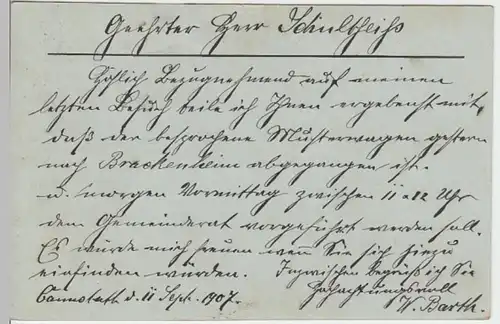 Geehrter Herr Schultheiss
Höflich Bezugnehmend auf meinen
letzten Besuch teile ich Ihnen ergebenst mit,
daß der besprochene Musterwagen gestern
nach Brackenheim abgegangen ist.
u. morgen Vormittag zwischen 11 & 12 Uhr
dem Gemeinderat vorgeführt werden soll.
Es würde mich freuen wenn Sie sich hiezu
einfinden würden. Inzwischen begrüsst ich Sie
Cannstatt d. 11 Sept. 1907. Hochachtungsvoll
W. Barth.